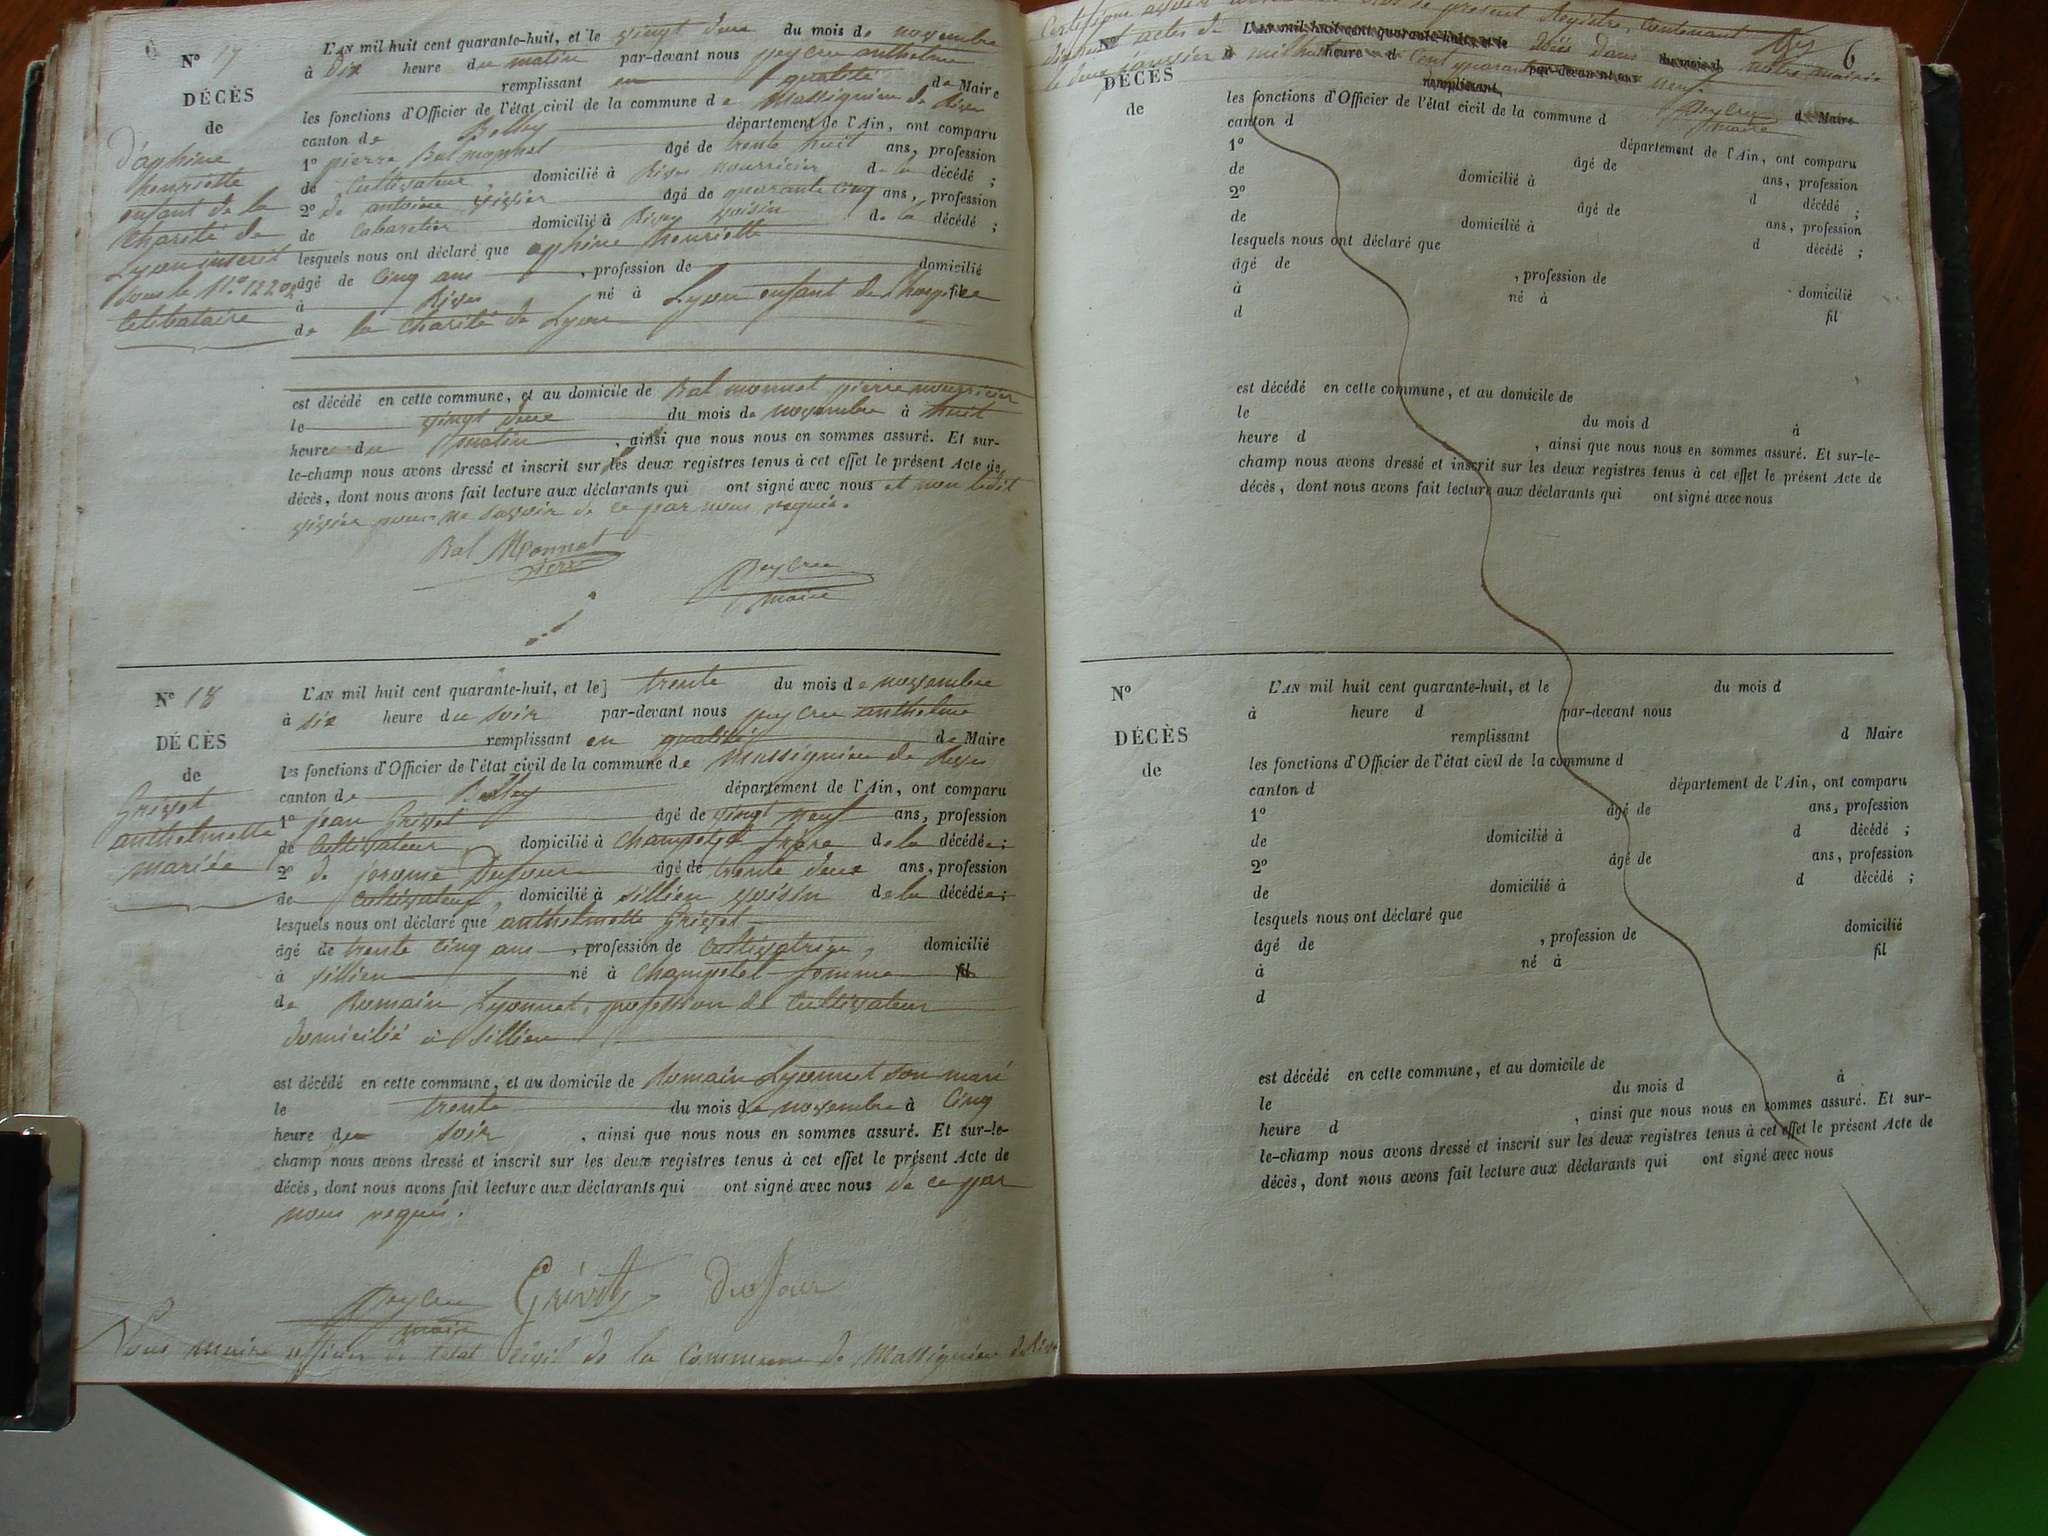 Nº 17
DÉCÈS
de
D'aphine
henriette
enfant de la
Charité de
Lyon inscrit
sous le Nº
Célibataire
L'AN mil huit cent quarante-huit, et le vingt deux du mois de novembre
à dix heure du matin par-devant nous peycru anthelme
remplissant en qualité de Maire
les fonctions d'Officier de l'état civil de la commune de Massignieu de Rives
canton de Belley département de l'Ain, ont comparu
1º pierre Bal monnet âgé de trente huit ans, profession
de Cultivateur, domicilié à Rives nourricier de la décédé ;
2º de antoine vivier âgé de quarante cinq ans, profession
de Cabaretier domicilié à Rives voisin de la décédé ;
lesquels nous ont déclaré que aphine henriette
âgé de cinq ans, profession de domicilié
à Rives né à Lyon enfant de l'hospice fil
de la Charité de Lyon
est décédé en cette commune, et au domicile de Bal monnet pierre nourricier
le vingt deux du mois de novembre à huit
heure du matin, ainsi que nous nous en sommes assuré. Et sur-
le-champ nous avons dressé et inscrit sur les deux registres tenus à cet effet le présent Acte de
décès, dont nous avons fait lecture aux déclarants qui ont signé avec nous et non ledit
vivier pour ne savoir de ce par nous requis.
Bal Monnet
pierre
Peycru
maire
Nº 18
DÉCÈS
de
Grivet
anthelmette
mariée
L'AN mil huit cent quarante-huit, et le] trente du mois de novembre
à six heure du soir par-devant nous peycru anthelme
remplissant en qualité de Maire
les fonctions d'Officier de l'état civil de la commune de Massignieu de Rives
canton de Belley département de l'Ain, ont comparu
1º jean Grivet âgé de vingt neuf ans, profession
de Cultivateur, domicilié à Champtel frère de la décédée ;
2º de jerome Dufour âgé de trente deux ans, profession
de Cultivateur, domicilié à sillieu voisin de la décédée ;
lesquels nous ont déclaré que anthelmette Grivet
âgé de trente cinq ans, profession de Cultivatrice, domicilié
à sillieu né à Champtel femme fil
de Romain Lyonnet, profession de Cultivateur
domicilié à Sillieu
est décédé en cette commune, et au domicile de Romain Lyonnet son mari
le trente du mois de novembre à Cinq
heure du soir, ainsi que nous nous en sommes assuré. Et sur-le-
champ nous avons dressé et inscrit sur les deux registres tenus à cet effet le présent Acte de
décès, dont nous avons fait lecture aux déclarants qui ont signé avec nous de ce par
nous requis.
Peycru
maire
Grivet
Dufour
Nous maire officier de l'état civil de la Commune de Massignieu de Rives
Certifions avoir le présent Registre, Contenant
actes de dans notre mairie
le deux janvier mil huit Cent quarante neuf.
Peycru
maire
6
Nº
DÉCÈS
de
L'AN mil huit cent quarante-huit, et le du mois d
à heure d par-devant nous
remplissant d Maire
les fonctions d'Officier de l'état civil de la commune d
canton d département de l'Ain, ont comparu
1º âgé de ans, profession
de domicilié à d décédé ;
2º âgé de ans, profession
de domicilié à d décédé ;
lesquels nous ont déclaré que
âgé de , profession de domicilié
à né à fil
d
est décédé en cette commune, et au domicile de
le du mois d à
heure d , ainsi que nous nous en sommes assuré. Et sur-le-
champ nous avons dressé et inscrit sur les deux registres tenus à cet effet le présent Acte de
décès, dont nous avons fait lecture aux déclarants qui ont signé avec nous
Nº
DÉCÈS
de
L'AN mil huit cent quarante-huit, et le du mois d
à heure d par-devant nous
remplissant d Maire
les fonctions d'Officier de l'état civil de la commune d
canton d département de l'Ain, ont comparu
1º âgé de ans, profession
de domicilié à d décédé ;
2º âgé de ans, profession
de domicilié à d décédé ;
lesquels nous ont déclaré que
âgé de , profession de domicilié
à né à fil
d
est décédé en cette commune, et au domicile de
le du mois d à
heure d , ainsi que nous nous en sommes assuré. Et sur-
le-champ nous avons dressé et inscrit sur les deux registres tenus à cet effet le présent Acte de
décès, dont nous avons fait lecture aux déclarants qui ont signé avec nous